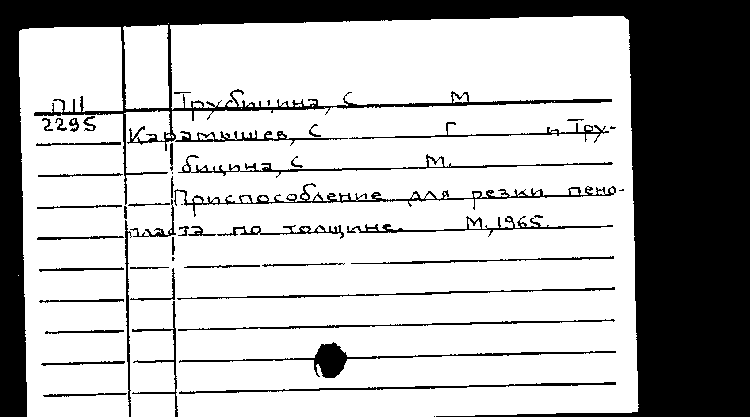 П11 Трубицина, С М
2295
Карамышев, С Г и Тру-
бицина, С М.
Приспособление для резки пено-
пласта по толщине. М., 1965.